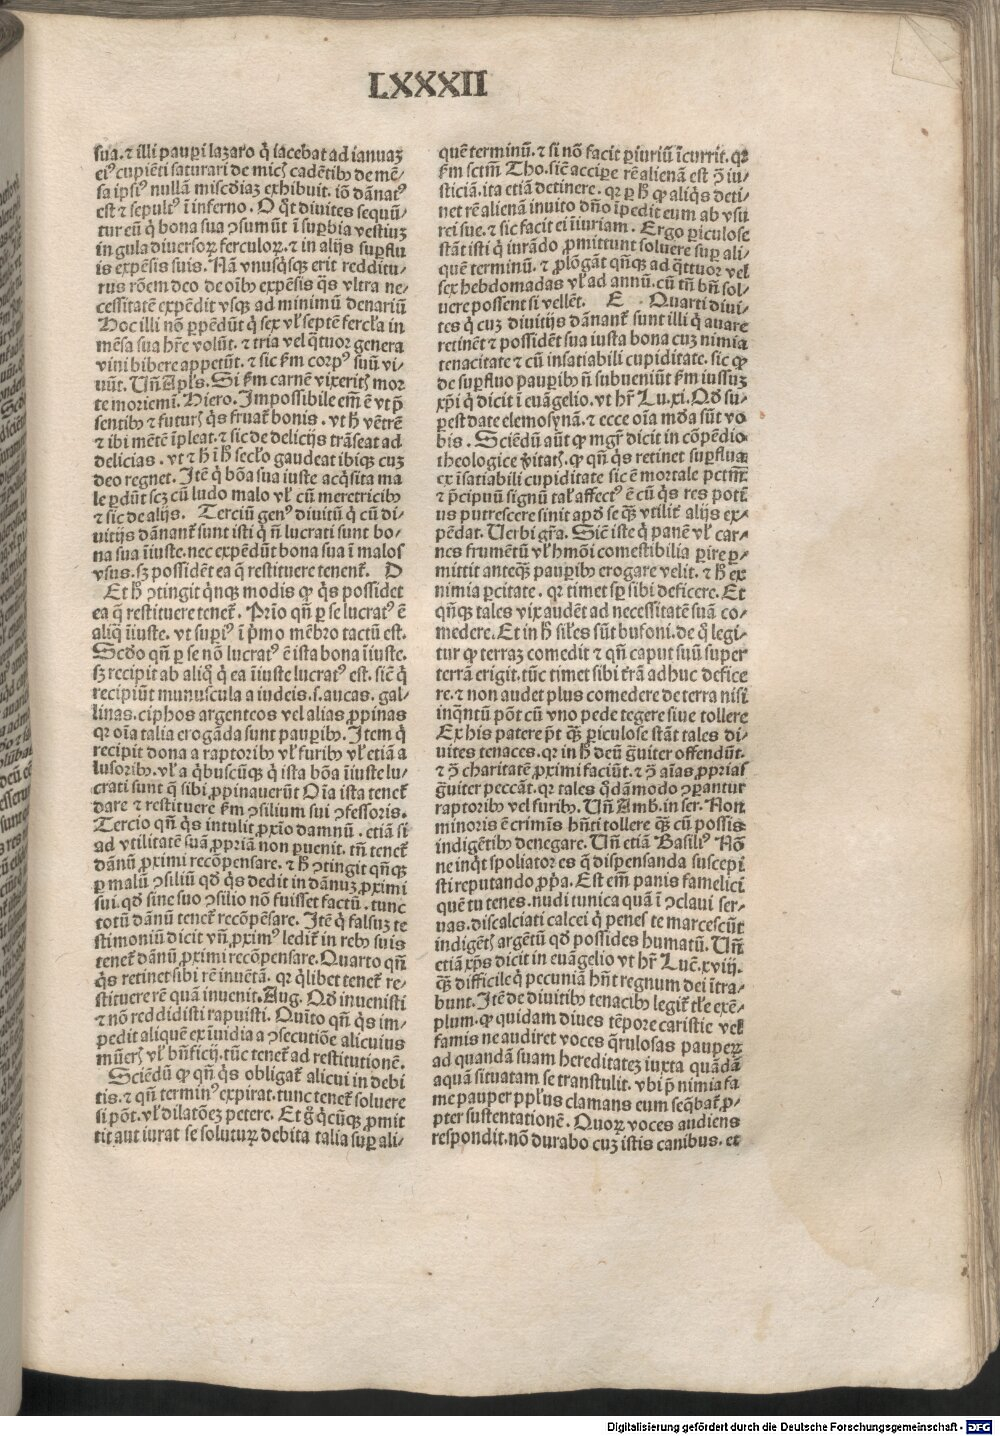 LXXXII
sua. ⁊ illi paup̲i lazaro q̇ iacebat ad ianuaꝫ
eiꝰ cupiēti saturari de mic̄ꝭ cadētibꝫ de mē⸗
sa ip̄siꝰ nullā mis̄cdiaꝫ exhibuit. iō dānatꝰ
est ⁊ sepultꝰ ī inferno. O q̄t diuites sequū⸗
tur eū q̇ bona sua ꝯsumūt ī sup̲bia vestiuꝫ
in gula diuersoꝝ ferculoꝝ. ⁊ in alijs sup̲flu
is expēsis suis. Nā vnusq̇sqꝫ erit redditu⸗
rus rōem deo de oībꝫ expēsis q̇s vltra ne⸗
cessitatē expēdit vsqꝫ ad minimū denariū
Hoc illi nō p̲pēdūt q̇ sex vl̄ septē fercl̄a in
mēsa sua hr̄e volūt. ⁊ tria vel q̄tuor genera
vini bibere appetūt. ⁊ sic ẜm corpꝰ suū vi⸗
uūt. Vn̄ Apl̄s. Si ẜm carnē vixeritꝭ mor
te moriemī. Hiero. Impossibile em̄ ē vt p̄
sentibꝫ ⁊ futurꝭ q̇s fruat᷑ bonis. vt h̄ vētrē
⁊ ibi mētē īpleat. ⁊ sic de delicijs trāseat ad
delicias. vt ⁊ h̄ ī h̄ secl̄o gaudeat ibiqꝫ cuꝫ
deo regnet. Itē q̇ bōa sua iuste acq̇sita ma
le p̲dūt scꝫ cū ludo malo vl̄ cū meretricibꝫ
⁊ sic de alijs. Terciū genꝰ diuitū q̇ cū di⸗
uitijs dānant᷑ sunt isti q̇ n̄ lucrati sunt bo⸗
na sua īiuste. nec expēdūt bona sua ī malos
vsus. sꝫ possidēt ea q̄ restituere tenent᷑. D
Et h̄ ꝯtingit q̇nqꝫ modis ꝙ q̇s possidet
ea q̄ restituere tenet᷑. Prīo qn̄ p̲ se lucratꝰ ē
aliq̇ īiuste. vt sup̲iꝰ ī p̄mo mēbro tactū est.
Scd̄o qn̄ p̲ se nō lucratꝰ ē ista bona īiuste.
sꝫ recipit ab aliq̇ q̇ ea īiuste lucratꝰ est. sic̄ q̇
recipiūt munuscula a iudeis. s. aucas. gal⸗
linas. ciphos argenteos vel alias ꝓpinas
qꝛ oīa talia erogāda sunt paup̲ibꝫ. Itē q̇
recipit dona a raptoribꝫ vl̄ furibꝫ vl̄ etiā a
lusoribꝫ. vl̄ a q̇buscūqꝫ q̇ ista bōa īiuste lu⸗
crati sunt q̄ sibi ꝓpinauerūt Oīa ista tenet᷑
dare ⁊ restituere ẜm ꝯsilium sui ꝯfessoris.
Tercio qn̄ q̇s intulit ꝓxīo damnū. etiā si
ad vtilitatē suā ꝓpriā non ꝑuenit. tn̄ tenet᷑
dānū ꝓximi recōpensare. ⁊ h̄ ꝯtingit qn̄qꝫ
p̲ malū ꝯsiliū qd̄ q̇s dedit in dānuꝫ ꝓximi
sui. qd̄ sine suo ꝯsilio nō fuisset factū. tunc
totū dānū tenet᷑ recōpēsare. Itē q̇ falsuꝫ te
stimoniū dicit vn̄ ꝓximꝰ ledit᷑ in rebꝫ suis
tenet᷑ dānū ꝓximi recōpensare. Quarto qn̄
q̇s retinet sibi rē inuētā. qꝛ q̇libet tenet᷑ re⸗
stituere rē quā inuenit. Aug. Qd̄ inuenisti
⁊ nō reddidisti rapuisti. Quīto qn̄ q̇s im⸗
pedit aliquē ex īuidia a ꝯsecutiōe alicuius
mūerꝭ vl̄ bn̄ficij. tūc tenet᷑ ad restitutionē.
Sciēdū ꝙ qn̄ q̇s obligat᷑ alicui in debi
tis. ⁊ qn̄ terminꝰ expirat. tunc tenet᷑ soluere
si pōt. vl̄ dilatōeꝫ petere. Et ḡ q̇cūqꝫ ꝓmit
tit aut iurat se soluturꝫ debita talia sup̲ ali⸗
quē terminū. ⁊ si nō facit p̲iuriū īcurrit. qꝛ
ẜm sctm̄ Tho. sic̄ accipe rē alienā est ꝯ̄ iu⸗
sticiā. ita etiā detinere. qꝛ p̲ h̄ ꝙ aliq̇s deti⸗
net rē alienā inuito dn̄o īpedit eum ab vsu
rei sue. ⁊ sic facit ei īiuriam. Ergo p̲iculose
stāt isti q̇ iurādo ꝓmittunt soluere sup̲ ali⸗
quē terminū. ⁊ ꝓlōgāt qn̄qꝫ ad q̄ttuor vel
sex hebdomadas vl̄ ad annū. cū tn̄ bn̄ sol⸗
uere possent si vellēt. E Quarti diui⸗
tes q̇ cuꝫ diuitijs dānant᷑ sunt illi q̇ auare
retinēt ⁊ possidēt sua iusta bona cuꝫ nimia
tenacitate ⁊ cū insatiabili cupiditate. sic ꝙ
de sup̲fluo paup̲ibꝫ n̄ subueniūt ẜm iussuꝫ
xp̄i q̇ dicit ī euāgelio. vt hr̄ Lu. xi. Qd̄ su⸗
p̲est date elemosynā. ⁊ ecce oīa mūda sūt vo
bis. Sciēdū aūt ꝙ mgr̄ dicit in cōpēdio
theologice v̇itatꝭ. ꝙ qn̄ q̇s retinet sup̲flua
ex īsatiabili cupiditate sic ē mortale pctm̄.
⁊ p̄cipuū signū tal̄ affectꝰ ē cū q̇s res potiꝰ
us putrescere sinit apd̄ se q̄ꝫ vtilit᷑ alijs ex⸗
pēdat. Verbi gr̄a. Sic̄ iste q̇ panē vl̄ car⸗
nes frumētū vl̄ hmōi comestibilia p̲ire p̲⸗
mittit anteq̄ꝫ paup̲ibꝫ erogare velit. ⁊ h̄ ex
nimia p̲citate. qꝛ timet sp̄ sibi deficere. Et
qn̄qꝫ tales vix audēt ad necessitatē suā co⸗
medere. Et in h̄ sil̄es sūt bufoni. de q̇ legi⸗
tur ꝙ terraꝫ comedit ⁊ qn̄ caput suū super
terrā erigit. tūc timet sibi t̄rā adhuc defice
re. ⁊ non audet plus comedere de terra nisi
inq̄ntū pōt cū vno pede tegere siue tollere
Ex his patere p̄t q̄ꝫ p̲iculose stāt tales di⸗
uites tenaces. qꝛ in h̄ deū g̈uiter offendūt.
⁊ ꝯ̄ charitatē ꝓximi faciūt. ⁊ ꝯ̄ aīas ꝓprias
g̈uiter peccāt. qꝛ tales q̇dāmodo ꝯp̲antur
raptoribꝫ vel furibꝫ. Vn̄ Amb. in ser. Non
minoris ē crimīs hn̄ti tollere q̄ꝫ cū possis
indigētibꝫ denegare. Vn̄ etiā Basiliꝰ Nō
ne inq̇t spoliator es q̇ dispensanda suscepi
sti reputando ꝓp̄a. Est em̄ panis famelici
quē tu tenes. nudi tunica quā ī ꝯclaui ser⸗
uas. discalciati calcei q̇ penes te marcescūt
indigētꝭ argētū qd̄ possides humatū. Vn̄
etiā xp̄s dicit in euāgelio vt hr̄ Luē. xviij.
q̄ꝫ difficile q̇ pecuniā hn̄t regnum dei ītra⸗
bunt. Itē de diuitibꝫ tenacibꝫ legit᷑ tl̄e exē⸗
plum. ꝙ quidam diues tēpore caristie vel
famis ne audiret voces q̄rulosas pauperꝫ
ad quandā suam hereditateꝫ iuxta quādā
aquā situatam se transtulit. vbi p̄ nimia fa
me pauper ppl̄us clamans eum seq̄bat᷑ ꝓ⸗
pter sustentationē. Quoꝝ voces audiens
respondit. nō durabo cuꝫ istis canibus. et
Digitalisierung gefördert durch die Deutsche Forschungsgemeinschaft - DFG